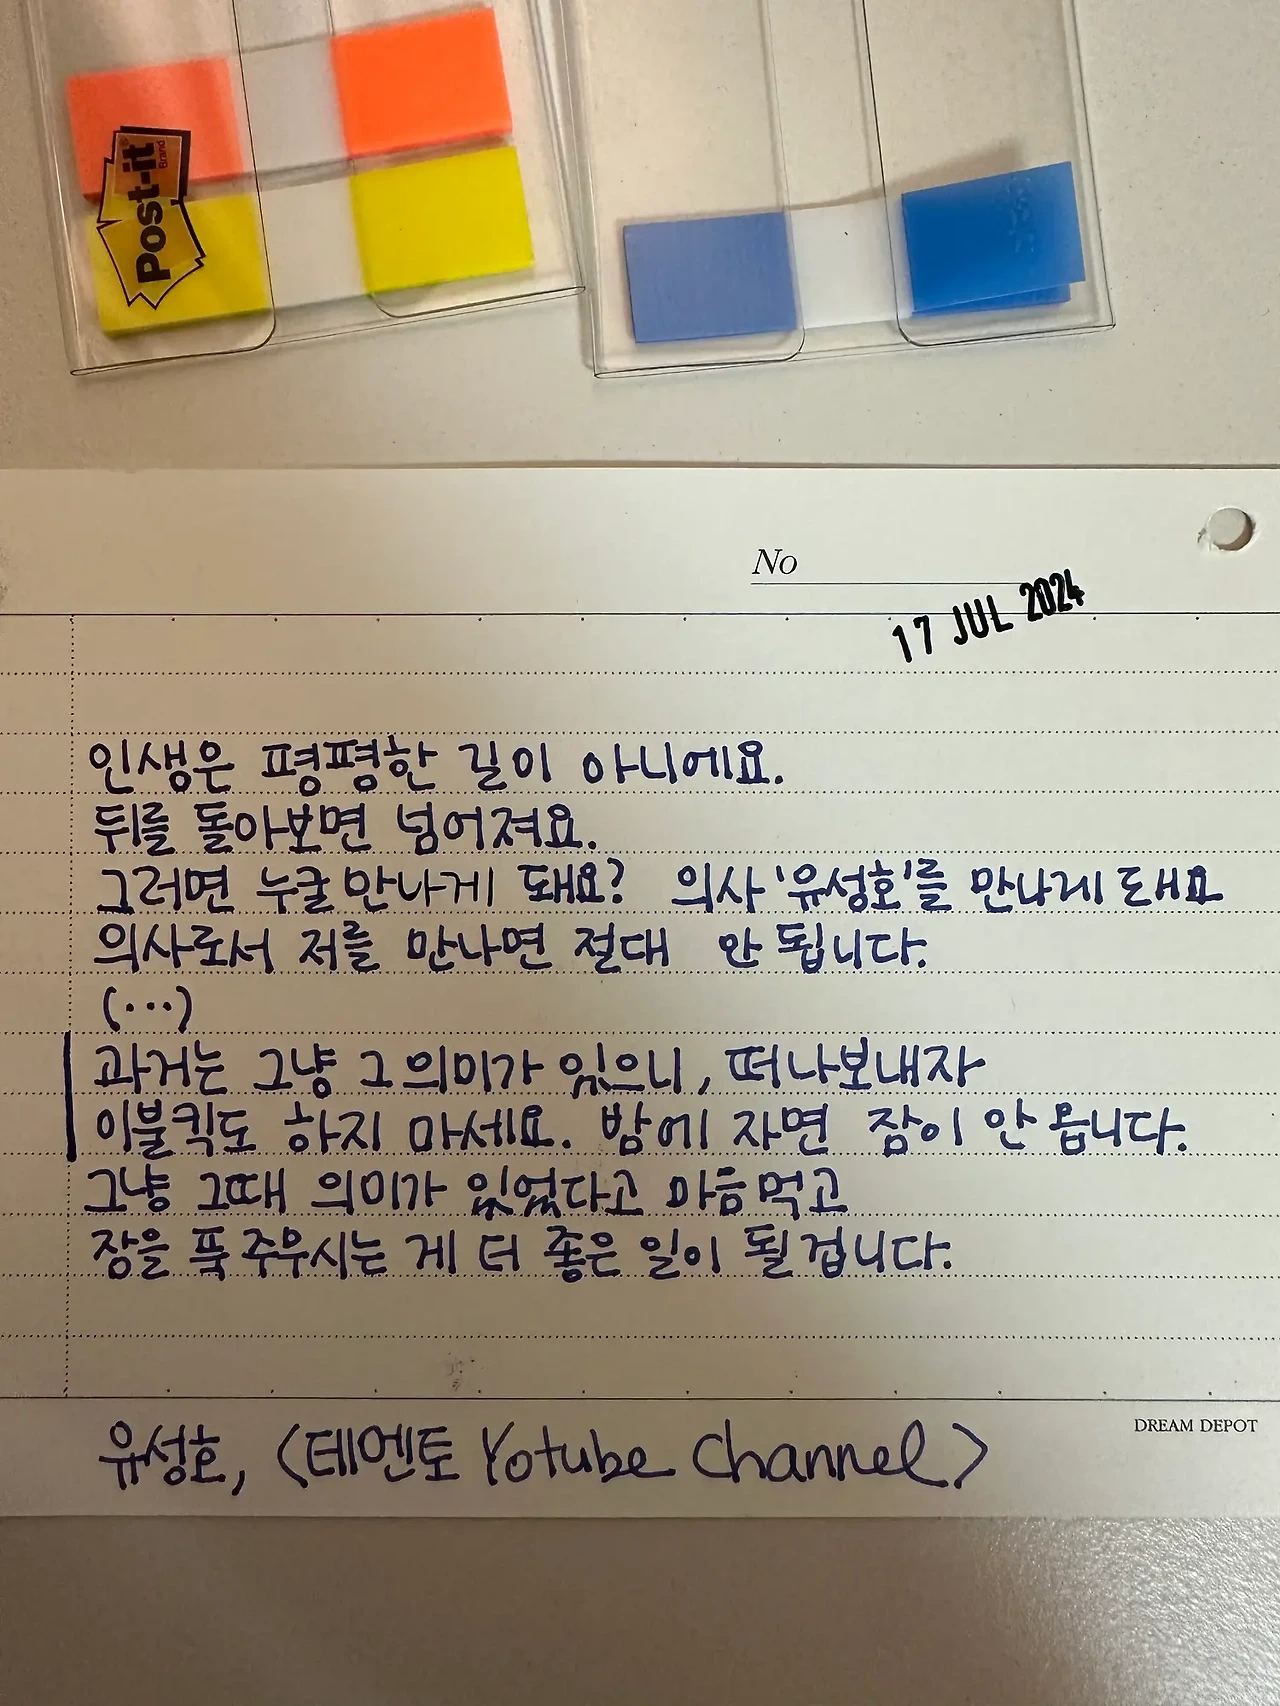 Post-it
Brand
No
17 JUL 2024
인생은 평평한 길이 아니에요.
뒤를 돌아보면 넘어져요.
그러면 누굴 만나게 돼요? 의사 '유성호'를 만나게 돼요
의사로서 저를 만나면 절대 안 됩니다.
(...)
과거는 그냥 그 의미가 있으니, 떠나보내자
이불킥도 하지 마세요. 밤에 자면 잠이 안 옵니다.
그냥 그때 의미가 있었다고 마음먹고
잠을 푹 주무시는 게 더 좋은 일이 될 겁니다.
DREAM DEPOT
유성호, 〈데멘토 Yotube Channel〉